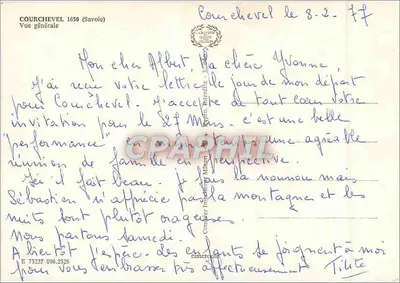 COURCHEVEL 1650 (Savoie)
Vue générale
Courchevel le 8-2-77
Mon cher Albert, Ma chère Yvonne,
J'ai reçu votre lettre le jour de mon départ
pour Courchevel. J'accepte de tout cœur votre
invitation pour le 27 Mars. C'est une belle
"performance" une agréable
réunion de famille en perspective.
Ici il fait beau. Je fais la nounou mais
Sébastien n'apprécie pas la montagne et les
nuits sont plutôt orageuses.
Nous partons samedi.
A bientôt j'espère. Les enfants se joignent à moi
pour vous embrasser très affectueusement Titite
E 73227 096.2526
CPAPHIL